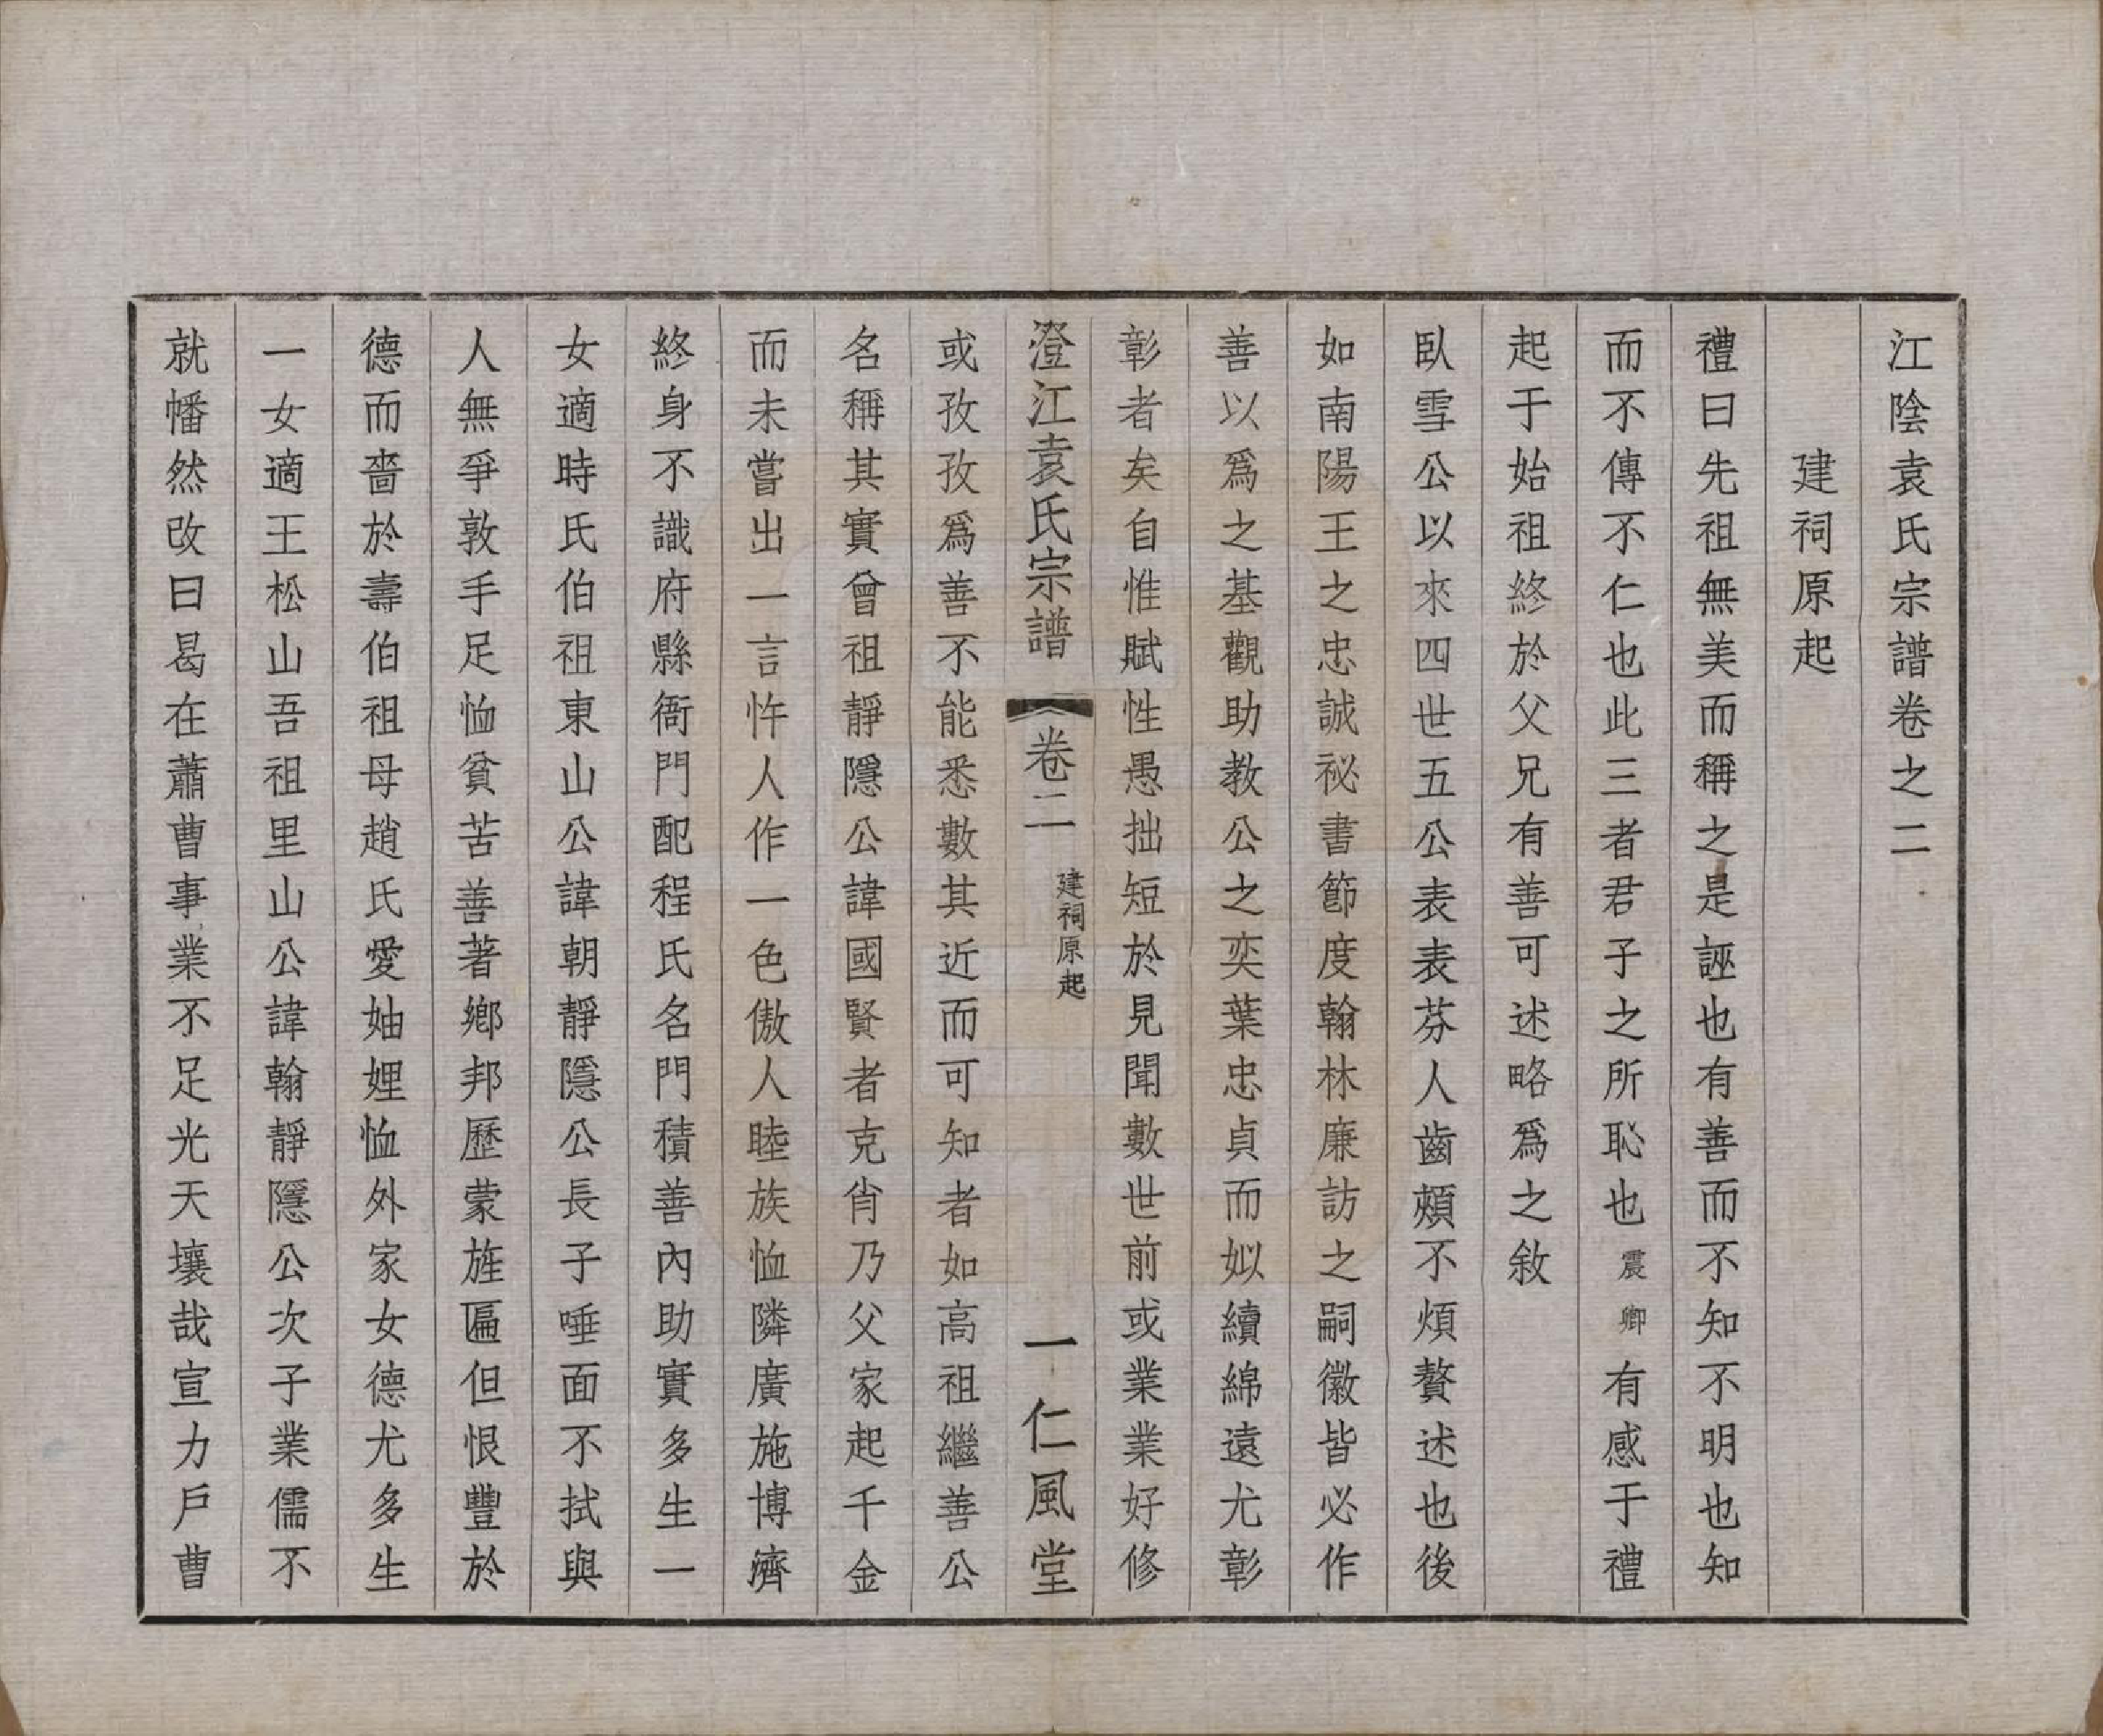 江陰袁氏宗譜卷之二
建祠原起
禮曰先祖無美而稱之是誣也有善而不知不明也知
而不傳不仁也此三者君子之所恥也震卿有感于禮
起于始祖終於父兄有善可述略爲之敘
臥雪公以來四世五公表表芬人齒頰不煩贅述也後
如南陽王之忠誠祕書節度翰林廉訪之嗣徽皆必作
善以爲之基觀助教公之奕葉忠貞而姒續綿遠尤彰
彰者矣自惟賦性愚拙短於見聞數世前或業業好修
澄江袁氏宗譜 卷二 建祠原起 一 仁風堂
或孜孜爲善不能悉數其近而可知者如高祖繼善公
名稱其實曾祖靜隱公諱國賢者克肖乃父家起千金
而未嘗出一言忤人作一色傲人睦族恤隣廣施博濟
終身不識府縣衙門配程氏名門積善內助實多生一
女適時氏伯祖東山公諱朝靜隱公長子唾面不拭與
人無爭敦手足恤貧苦善著鄉邦歷蒙旌匾但恨豐於
德而嗇於壽伯祖母趙氏愛妯娌恤外家女德尤多生
一女適王松山吾祖里山公諱翰靜隱公次子業儒不
就幡然改曰曷在蕭曹事業不足光天壤哉宣力戶曹